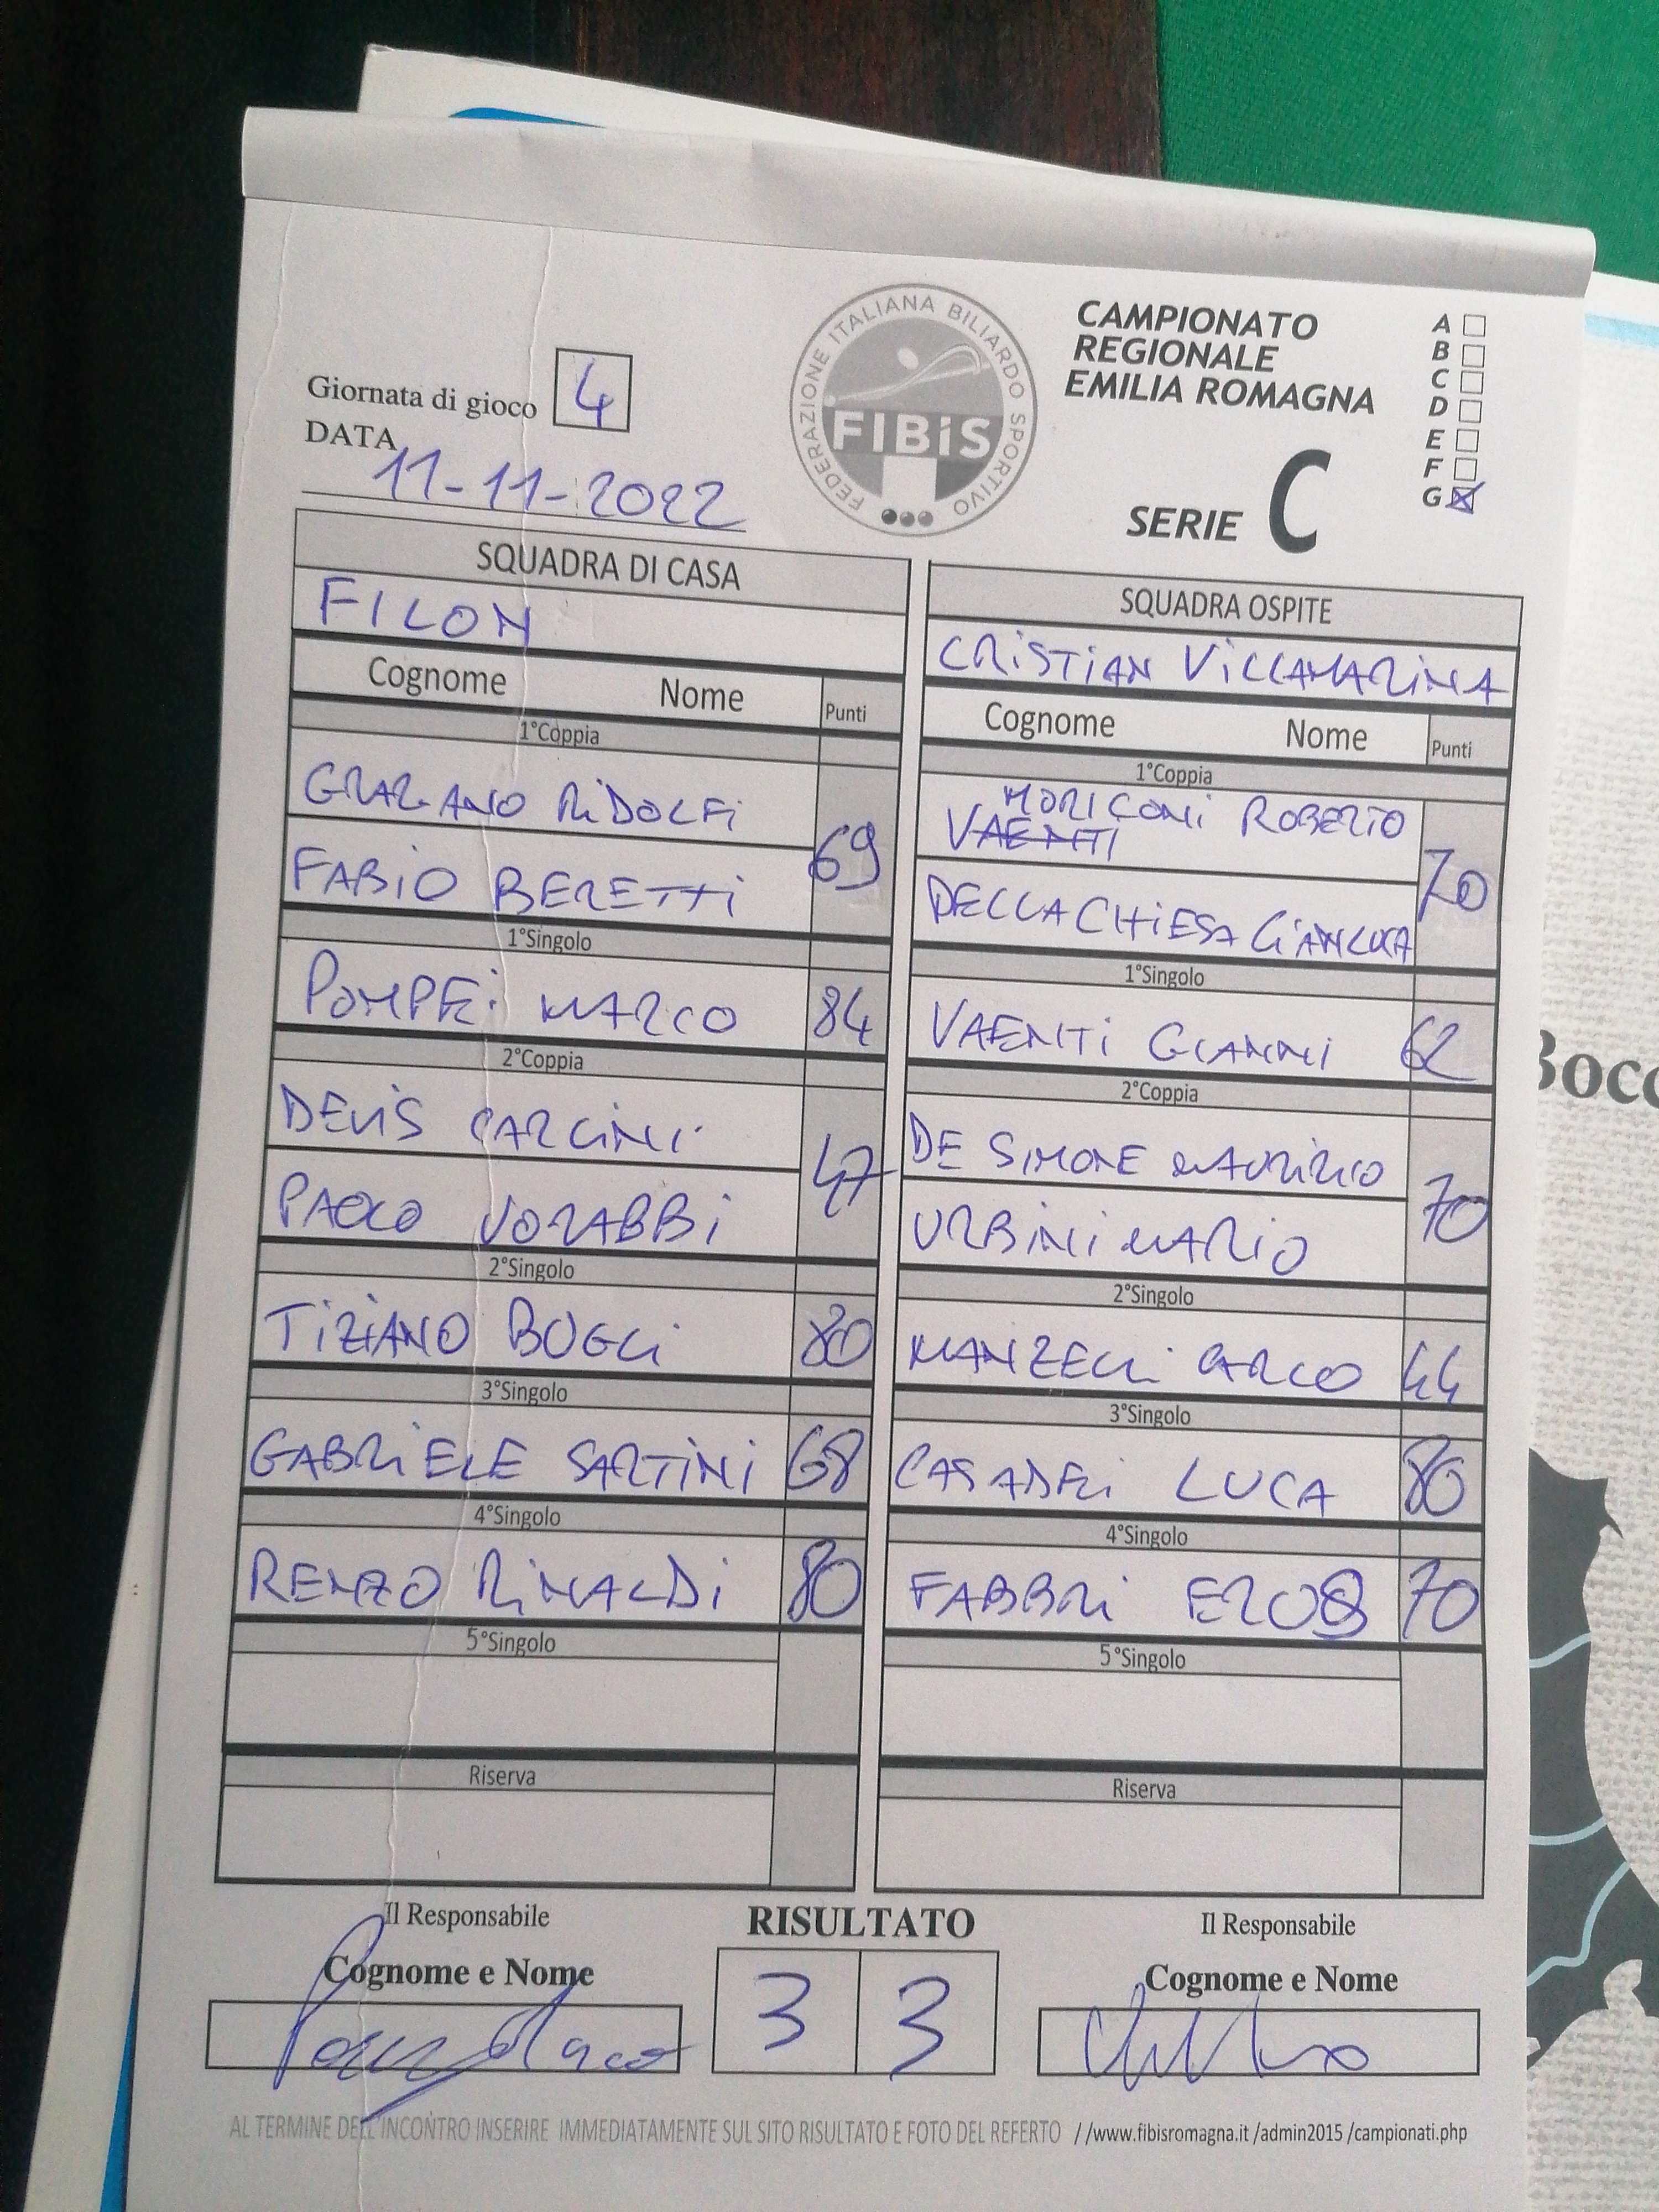 FEDERAZIONE ITALIANA BILIARDO SPORTIVO
FIBiS
CAMPIONATO
REGIONALE
EMILIA ROMAGNA
SERIE C
A
B
C
D
E
F
G
Giornata di gioco 4
DATA
11-11-2022
SQUADRA DI CASA
FILON
Cognome Nome Punti
1°Coppia
GRAZIANO RiDOLFi
FABiO BERETTi
69
1°Singolo
POMPEi MARCO 84
2°Coppia
DEVIS CARLINI
PAOLO VORABBi
47
2°Singolo
TiZiANO BUGLi 80
3°Singolo
GABRiELE SARTiNi 68
4°Singolo
RENZO RiNALDi 80
5°Singolo
Riserva
SQUADRA OSPITE
CRiSTiAN ViLLAMARiNA
Cognome Nome Punti
1°Coppia
MORICONi ROBERTO
VAENTI
DELLACHiESA GiANLUCA
70
1°Singolo
VAENTi GIANNI 62
2°Coppia
DE SIMONE MAURIZIO
URBiNi MARiO
70
2°Singolo
MANZELLi CARLO 44
3°Singolo
CASADEi LUCA 80
4°Singolo
FABBRi EROS 70
5°Singolo
Riserva
Il Responsabile
Cognome e Nome
RISULTATO
3 3
Il Responsabile
Cognome e Nome
AL TERMINE DELL'INCONTRO INSERIRE IMMEDIATAMENTE SUL SITO RISULTATO E FOTO DEL REFERTO //www.fibisromagna.it /admin2015 /campionati.php